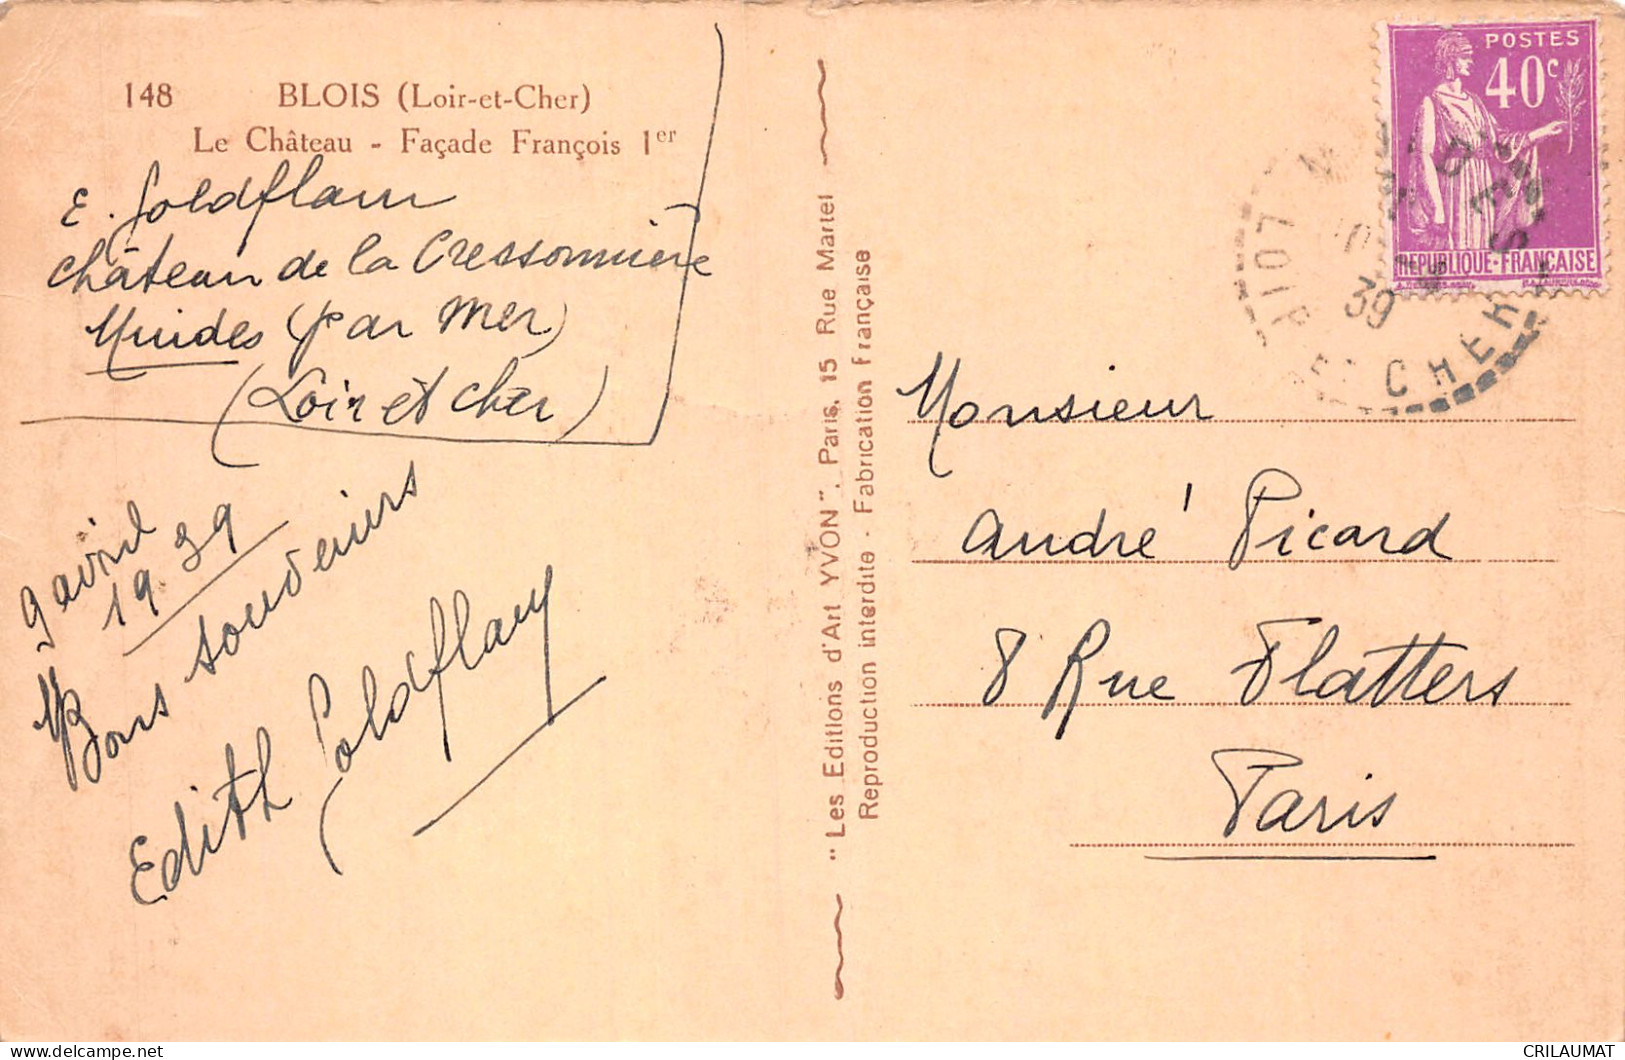 148 BLOIS (Loir-et-Cher)
Le Château - Façade François 1er
E. Goldflam
château de la Cressonnière
Muides (par Mer)
(Loir et cher)
9 avril
1939
Bons souvenirs
Edith Goldflam
"Les Editions d'Art YVON". Paris. 15 Rue Martel
Reproduction interdite - Fabrication française
POSTES
40c
REPUBLIQUE-FRANÇAISE
MUIDES
39
LOIR ET CHER
Monsieur
André Picard
8 Rue Flatters
Paris
CRILAUMAT